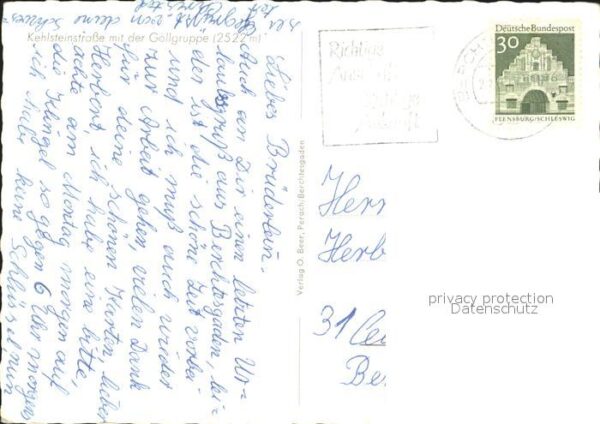 Kehlsteinstraße mit der Göllgruppe (2522 m)
Liebes Brüderlein,
Auch an Dir einen letzten Ur-
laubsgruß aus Berchtesgaden, lei-
der ist die schöne Zeit vorbei
und ich muß auch wieder
zur Arbeit gehen, vielen Dank
für deine schönen Karten, lieber
Herbert, ich habe eine bitte,
achte am Montag morgen auf
die Klingel so gegen 6 Uhr morgens
ich habe keine Schlüssel
Verlag O. Beer, Perach-Berchtesgaden
Richtige
Deutsche Bundespost
30
FLENSBURG/SCHLESWIG
Herrn
Herb
31
privacy protection
Datenschutz